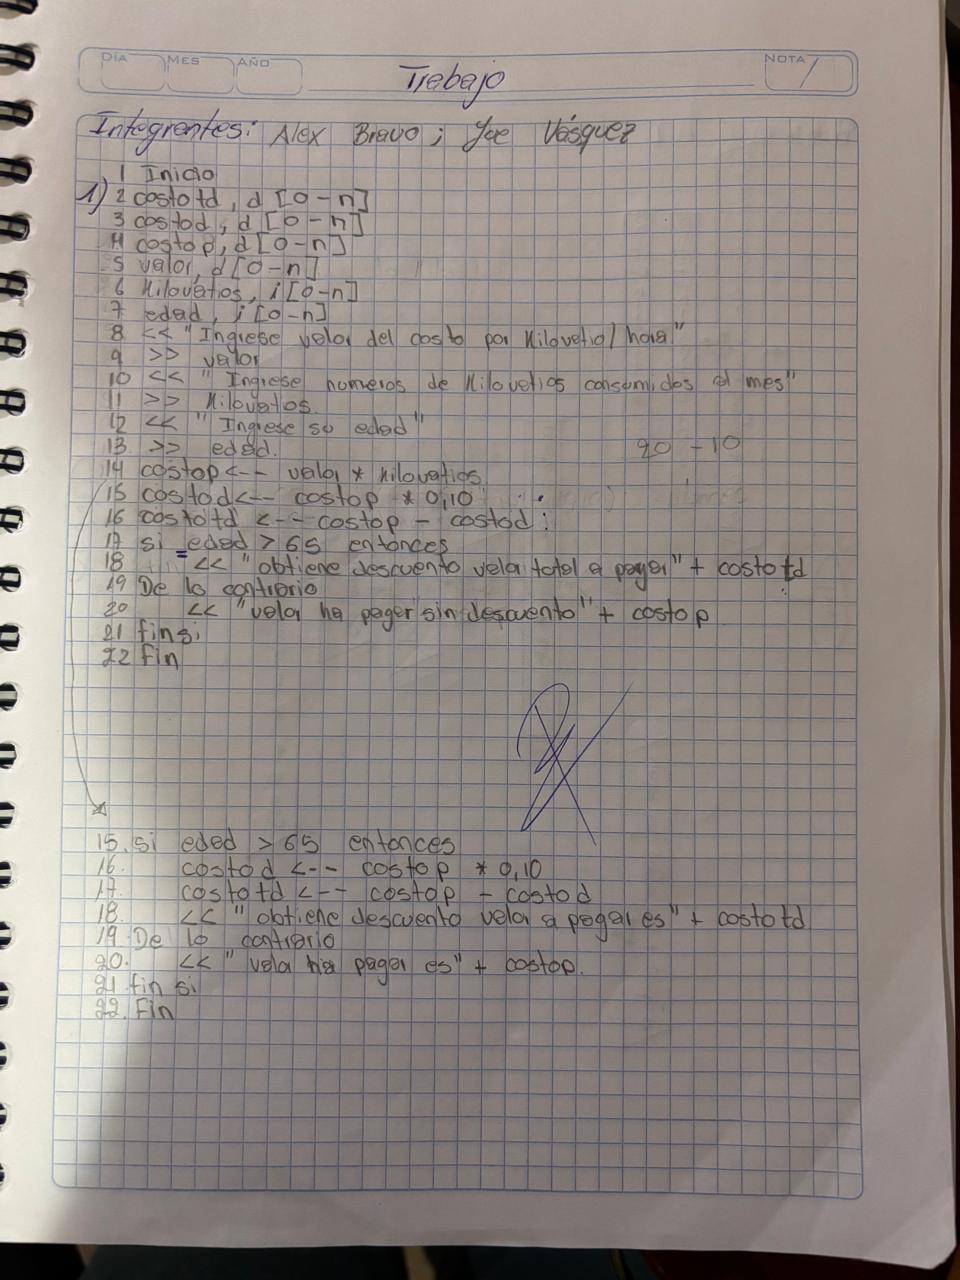 DÍA MES AÑO Trabajo NOTA
Integrantes: Alex Bravo ; Joe Vásquez
1 Inicio
1) 2 costotd, d [0-n]
3 costod, d [0-n]
4 costop, d [0-n]
5 valor, d [0-n]
6 Kilovatios, i [0-n]
7 edad, i [0-n]
8 << "Ingrese valor del costo por Kilovatio/hora"
9 >> valor
10 << "Ingrese numeros de Kilovatios consumidos al mes"
11 >> Kilovatos.
12 << "Ingrese su edad"
13 >> edad. 90 - 10
14 costop <-- valor * Kilovatios
15 costod <-- costop * 0,10
16 costotd <-- costop - costod ;
17 si edad > 65 entonces
18 << "obtiene descuento valor total a pagar" + costotd
19 De lo contrario
20 << "valor ha pagar sin descuento" + costop
21 fin si
22 fin
15. si edad > 65 entonces
16. costod <-- costop * 0,10
17. costotd <-- costop - costod
18. << "obtiene descuento valor a pagar es" + costotd
19. De lo contrario
20. << "valor ha pagar es" + costop.
21. fin si
22. Fin